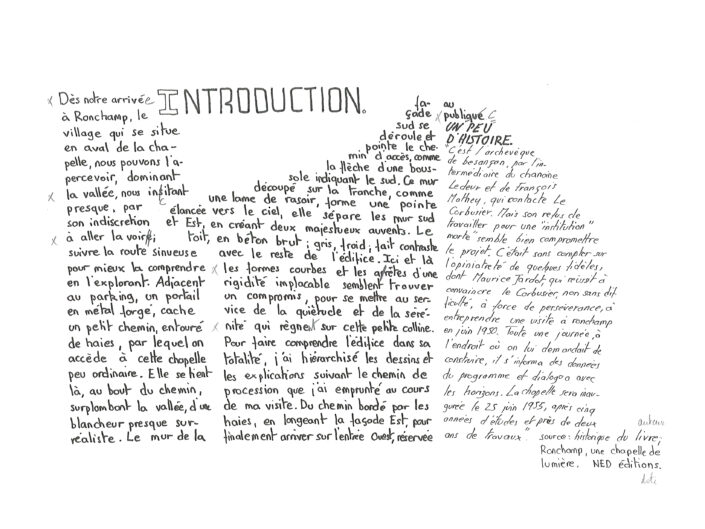 INTRODUCTION.
Dès notre arrivée
à Ronchamp, le
village qui se situe
en aval de la cha-
pelle, nous pouvons l'a-
percevoir, dominant
la vallée, nous incitant
presque, par
son indiscretion
à aller la voir;
suivre la route sinueuse
pour mieux la comprendre
en l'explorant. Adjacent
au parking, un portail
en métal forgé, cache
un petit chemin, entouré
de haies, par lequel on
accède à cette chapelle
peu ordinaire. Elle se tient
là, au bout du chemin,
surplombant la vallée, d'une
blancheur presque sur-
réaliste. Le mur de la
fa-
çade
sud se
déroule et
pointe le che-
min d'accès, comme
la flèche d'une bous-
sole indiquant le sud. Ce mur
découpé sur la tranche, comme
une lame de rasoir, forme une pointe
élancée vers le ciel, elle sépare les mur sud
et Est, en créant deux majestueux auvents. Le
toit, en béton brut; gris, froid; fait contraste
avec le reste de l'édifice. Ici et là
les formes courbes et les arrêtes d'une
rigidité implacable semblent trouver
un compromis, pour se mettre au ser-
vice de la quiétude et de la séré-
nité qui règne sur cette petite colline.
Pour faire comprendre l'édifice dans sa
totalité, j'ai hiérarchisé les dessins et
les explications suivant le chemin de
procession que j'ai emprunté au cours
de ma visite. Du chemin bordé par les
haies, en longeant la façade Est, pour
finalement arriver sur l'entrée Ouest, réservée
au
publique
UN PEU
D'HISTOIRE.
"C'est l'archevêque
de besançon, par l'in-
termédiaire du chanoine
Ledeur et de François
Mathey, qui contacte Le
Corbusier. Mais son refus de
travailler pour une "institution
morte" semble bien compromettre
le projet. C'était sans compter sur
l'opiniatreté de quelques fidèles,
dont Maurice Jardot, qui réussit à
convaincre le Corbusier, non sans dif-
ficulté, à force de perséverance, à
entreprendre une visite à ronchamp
en juin 1950. Toute une journée, à
l'endroit où on lui demandait de
construire, il s'informa des données
du programme et dialogua avec
les horizons. La chapelle sera inau-
gurée le 25 juin 1955, après cinq
années d'études et près de deux
ans de travaux"
auteur
source: historique du livre;
Ronchamp, une chapelle de
lumière. NED éditions.
date